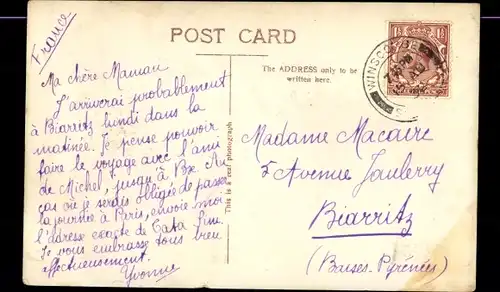 France
POST CARD
The ADDRESS only to be
written here.
This is a real photograph
WINSCOMBE
Ma chère Maman
J'arriverai probablement
à Biarritz lundi dans la
matinée. Je pense pouvoir
faire le voyage avec l'ami
de Michel, jusqu'à Bx. Au
cas où je serais obligée de passer
la journée à Paris, envoie moi
l'adresse exacte de Tata Fine.
Je vous embrasse tous bien
affectueusement.
Yvonne
Madame Macaire
5 Avenue Jaulerry
Biarritz
(Basses-Pyrénées)